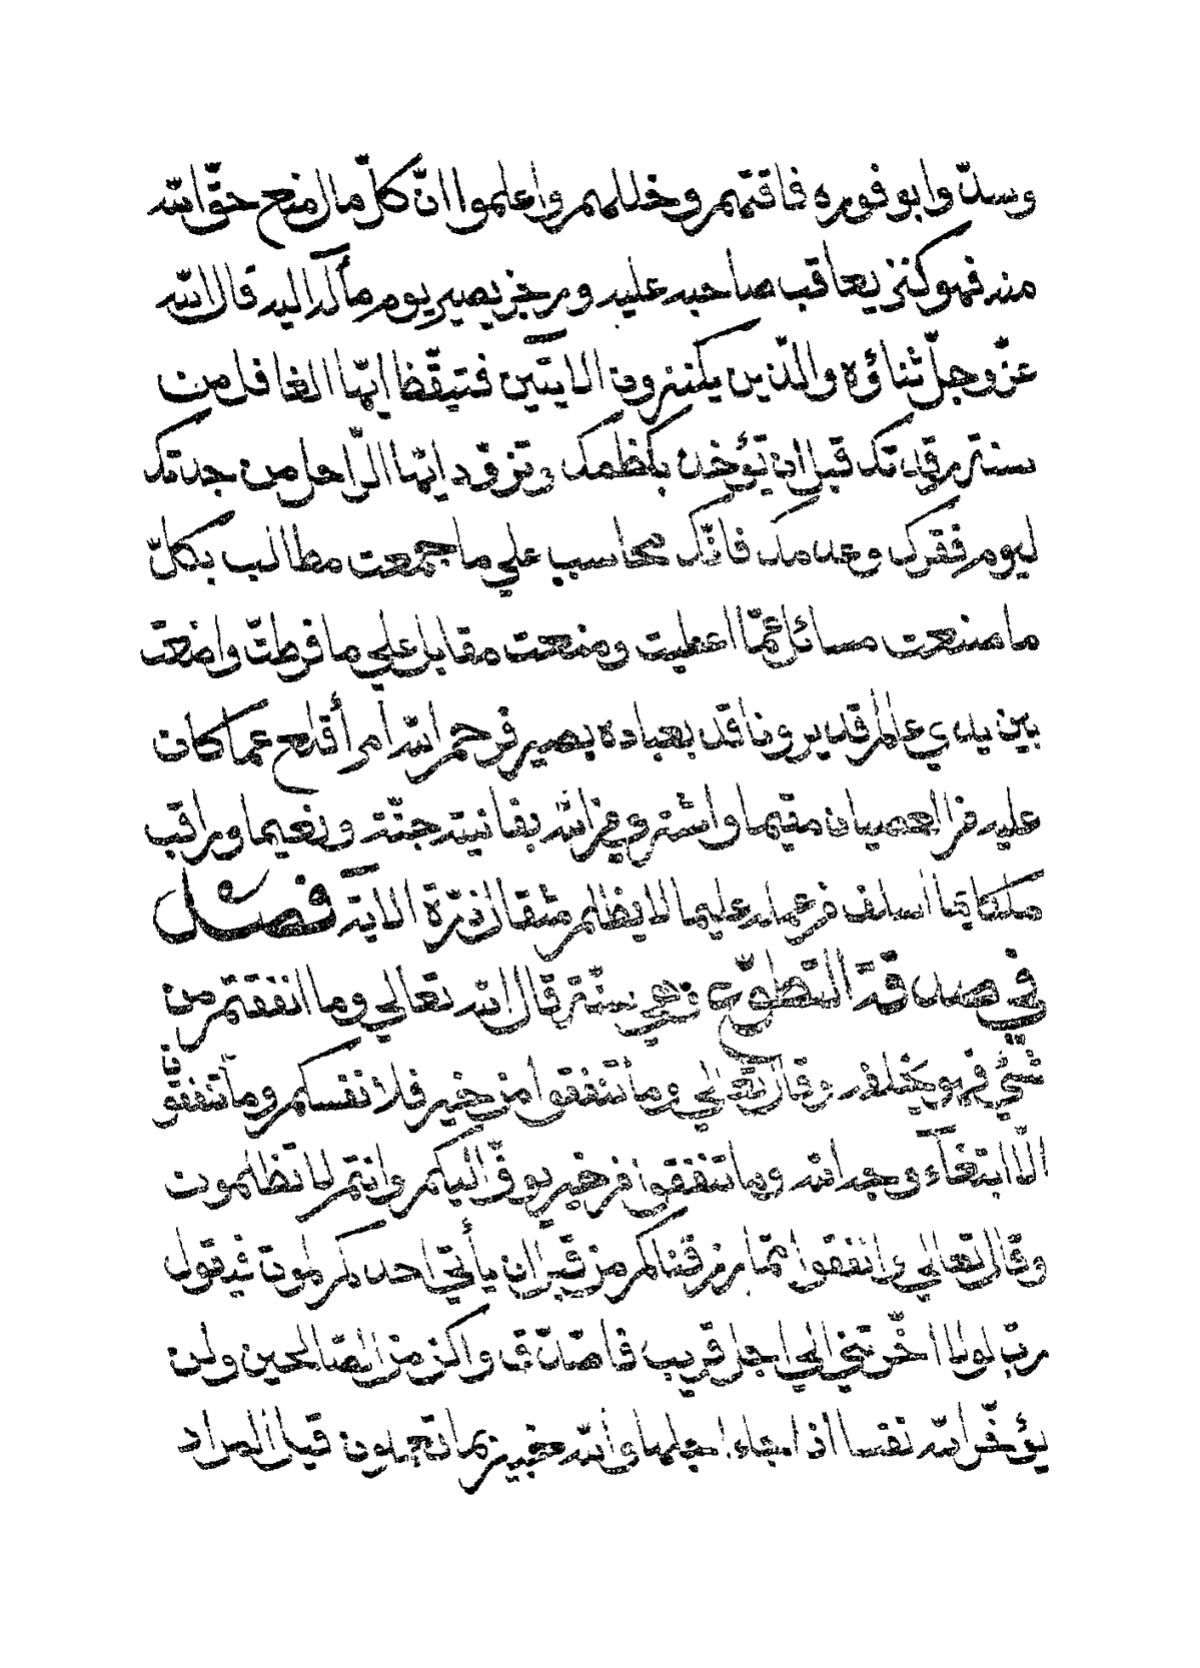 وسدّوا بوفوره فاقتهم وخللهم واعلموا انّ كلّ مال منع حقّ الله
منه فهو كنز يعاقب صاحبه عليه ومن خبر بصير يوم مآله اليه قال الله
عزّ وجلّ ثناؤه والّذين يكنزون الآيتين فتيقّظ ايّها الغافل من
سنة رقدتك قبل ان تؤخذ بكظمك وتزوّد ايّها الرّاحل من جدتك
ليوم فقرك وعدمك فانّك محاسب علي ما جمعت مطالب بكلّ
ما صنعت مسائل عمّا اعطيت ومنعت مقابل علي ما فرطت واضعت
بين يدي عالم قدير وناقد بعباده بصير فرحم الله امرأ أقلع عما كان
عليه من العصيان مقيما واشتري من الله بفانيته جنّة ونعيما وراقب
ملكا بما اسلف من عمله عليما لا يظلم مثقال ذرّة الآية فصل
في صدقة التطوّع وهي سنّة قال الله تعالي وما انفقتم من
شيء فهو يخلفه وقال تعالي وما تنفقوا من خير فلانفسكم وما تنفقون
الّا ابتغآء وجه الله وما تنفقوا من خير يوفّ اليكم وانتم لا تظلمون
وقال تعالي وانفقوا ممّا رزقناكم من قبل ان يأتي احدكم الموت فيقول
ربّ لولا اخّرتني الي اجل قريب فاصّدّق واكن من الصّالحين ولن
يؤخّر الله نفسا اذا جاء اجلها والله خبير بما تعملون قيل المراد